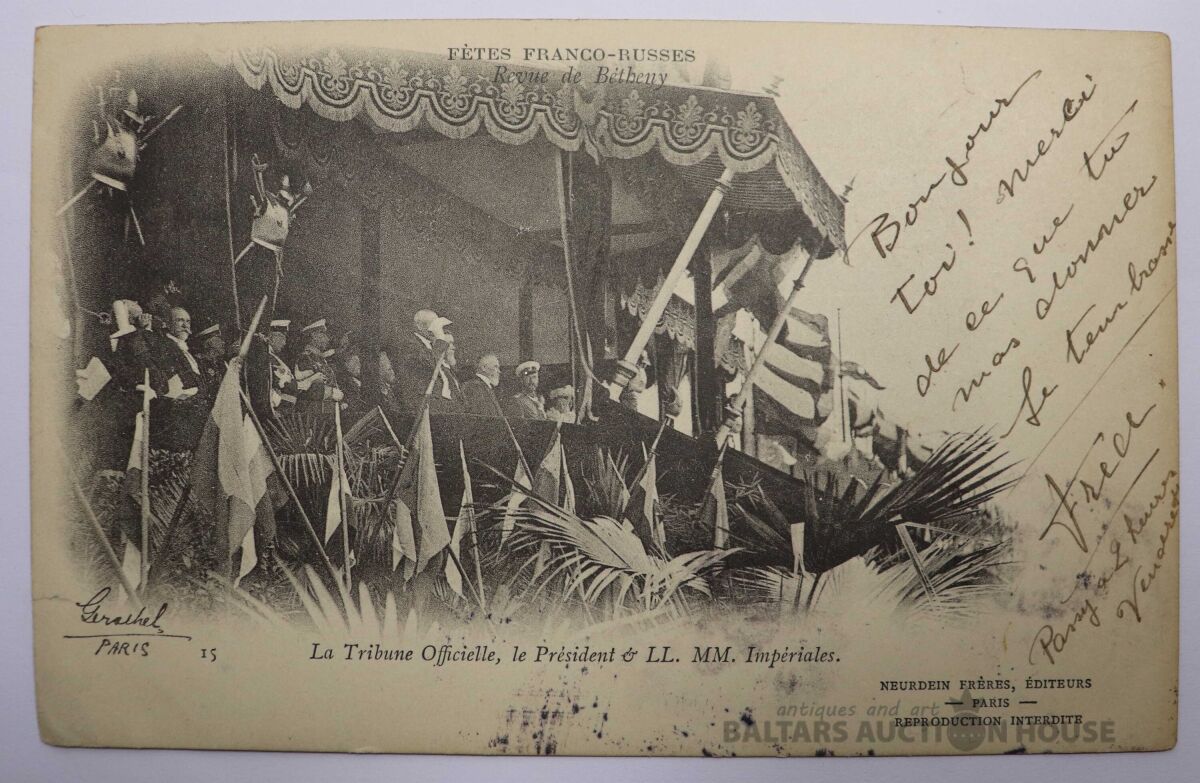 FÊTES FRANCO-RUSSES
Revue de Bétheny
Bonjour
toi! Merci
de ce que tu
mas donner
Je t'embrasse
Fréd.
Passy 2 heures
Vendredi
Gerschel
PARIS
15
La Tribune Officielle, le Président & LL. MM. Impériales.
NEURDEIN FRÈRES, ÉDITEURS
— PARIS —
REPRODUCTION INTERDITE
antiques and art
BALTARS AUCTION HOUSE